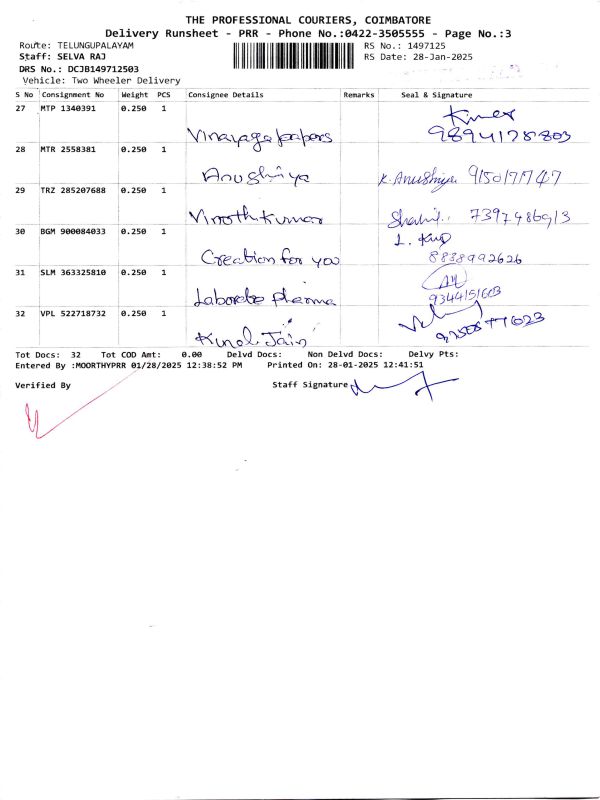 THE PROFESSIONAL COURIERS, COIMBATORE
Delivery Runsheet - PRR - Phone No.:0422-3505555 - Page No.:3
Route: TELUNGUPALAYAM RS No.: 1497125
Staff: SELVA RAJ RS Date: 28-Jan-2025
DRS No.: DCJB149712503
Vehicle: Two Wheeler Delivery
S No Consignment No Weight PCS Consignee Details Remarks Seal & Signature
27 MTP 1340391 0.250 1
Vinayaga papers 9894178803
28 MTR 2558381 0.250 1
Anushiya K. Anushiya 9150171747
29 TRZ 285207688 0.250 1
Vinothkumar 7397486913
30 BGM 900084033 0.250 1
Creation for you 8838992626
31 SLM 363325810 0.250 1
Laborate pharma 9344151603
32 VPL 522718732 0.250 1
Kunal Jain
Tot Docs: 32 Tot COD Amt: 0.00 Delvd Docs: Non Delvd Docs: Delvy Pts:
Entered By :MOORTHYPRR 01/28/2025 12:38:52 PM Printed On: 28-01-2025 12:41:51
Verified By Staff Signature